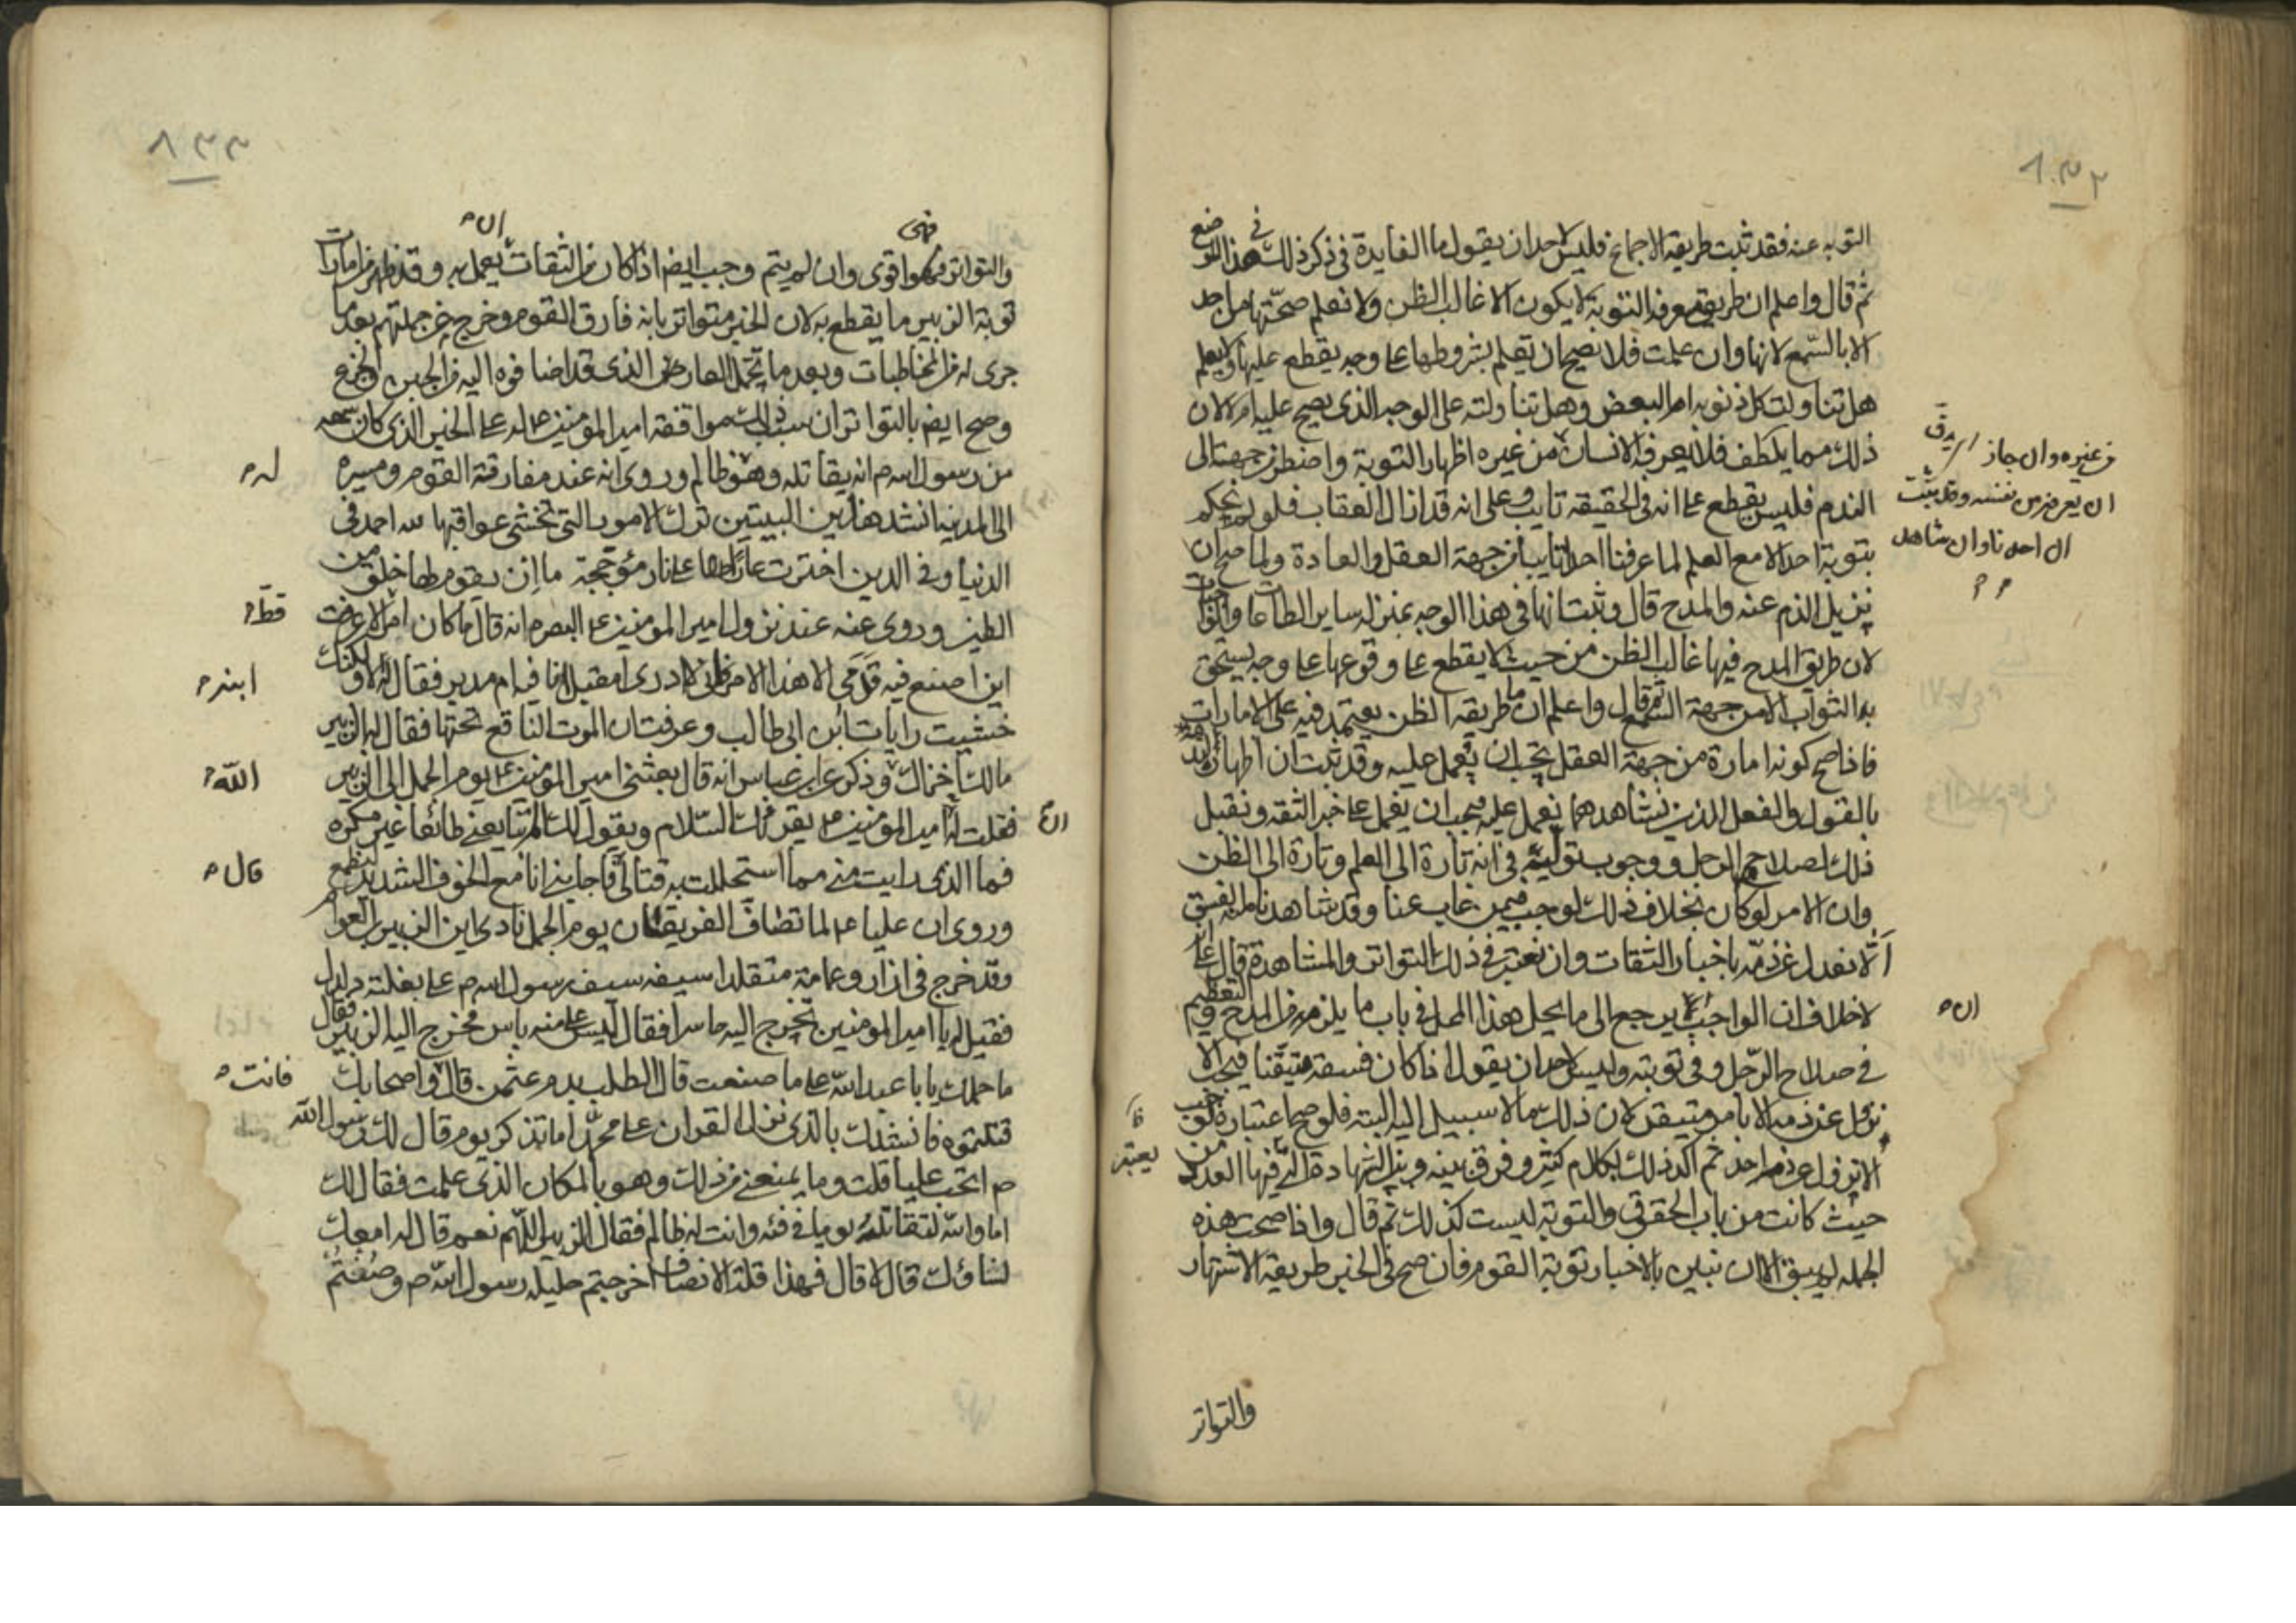 ٨٣٢
التوبه عنه فقد ثبت طريقه الاجماع فليس لاحد ان يقول ما الفايدة في ذكر ذلك في هذا الموضع
ثم قال واعلم ان طريق معرفه التوبة لا يكون الا غالب الظن ولا نعلم صحتها من احد
الا بالسمع لانها وان علمت فلا يصح ان تعلم بشروطها على وجه يقطع عليها ولا يعلم
هل تناولت كل ذنوبه ام البعض وهل تناولته على الوجه الذي يصح عليه ام لا لان
ذلك مما يلطف فلا يعرفه الانسان من غيره اظهار التوبة واضطر من جهته الى
من غيره وان جاز
ان يعرفه من نفسه وقد يثبت
ان احدنا وان شاهد
الندم فليس يقطع على انه في الحقيقه تايب وعلى انه قد ازال العقاب فلو لم نحكم
بتوبة احد الا مع العلم لما عرفنا احدا تايبا من جهة العقل والعادة ولما صح ان
نزيل الذم عنه والمدح قال وثبت انها في هذا الوجه بمنزله ساير الطاعات والواجبات
لان طريق المدح فيها غالب الظن من حيث لا يقطع على وقوعها على وجه يستحق
به الثواب الا من جهة السمع ثم قال واعلم ان ما طريقه الظن يعتمد فيه على الامارات
فاذا صح كونه امارة من جهة العقل يجب ان يعمل عليه وقد ثبت ان اظهار
بالقول والفعل الذين نشاهدهما نعمل عليه فيجب ان يعمل على خبر الثقه ونقبل
ذلك لصلاح الرجل ووجوب توليه في انه تارة الى العلم وتارة الى الظن
وان الامر لو كان بخلاف ذلك لوجب فيمن غاب عنا وقد شاهدناه يفسق
الا نعدل عن ذمه باخبار الثقات وان نعتبر في ذلك التواتر والمشاهدة قال
لا خلاف ان الواجب ان يرجع الى ما يحل هذا المحل في باب ما يلزم من المدح والتعظيم
ان
في صلاح الرجل وفي توبته وليس لاحد ان يقول اذا كان فسقه متيقنا فيجب الا
نزول عن ذمه الا بامر متيقن لان ذلك مما لا سبيل اليه البتة فلو صح اعتباره لوجب
الا نزول عن ذم احد ثم اكد ذلك بكلام كثير وفرق بينه وبين الشهادة التي فيها العدد من
يعتبر
حيث كانت من باب الحقوق والتوبة ليست كذلك ثم قال واذا صحت هذه
الجمله لم يبق الا ان نبين بالاخبار توبة القوم فان صح في الخبر طريقة الاشتهار
والتواتر
٨٣٣
والتواتر فهو اقوى وان لم يتم وجب ايضا اذا كان من الثقات ان يعمل به وقد ظهر من امارات
توبة الزبير ما يقطع به لان الخبر متواتر بانه فارق القوم وخرج عن جملتهم بعد ما
جرى له من المخاطبات وبعد ما تحمل العار الذي قد اضافوه اليه من الجبن والجزع
وصح ايضا بالتواتر ان سبب ذلك موافقة امير المومنين ع له على الخبر الذي كان سمعه
من رسول الله ص انه يقاتله وهو ظالم وروى انه عند مفارقة القوم ومسيره
له
الى المدينه انشد هذين البيتين ترك الامور التي تخشى عواقبها لله احمد في
الدنيا وفي الدين اخترت عارا على نار مؤججة ما ان يقوم لها خلق من
الطين وروى عنه عند نزول امير المومنين ع البصره انه قال ما كان امر
قط
اين اضع فيه قدمي الا هذا الامر فاني لا ادري امقبل انا فيه ام مدبر فقال له لا ولكنك
ابنه
خشيت رايات ابن ابي طالب وعرفت ان الموت الناقع تحتها فقال له الزبير
مالك اخزاك وذكر عن ابن عباس انه قال بعثني امير المومنين ع يوم الجمل الى الزبير
الله
فقلت له ان امير المومنين ع يقرئك السلام ويقول لك الم تبايعني طائعا غير مكره
فما الذي رايت مني مما استحللت به قتالي فاجابني انا مع الخوف الشديد لنطمع
قال
وروى ان عليا ع لما تصاف الفريقان يوم الجمل نادى اين الزبير بن العوام
وقد خرج في ازار وعمامة متقلدا سيفه سيف رسول الله ص على بغلته دلدل
فقيل له يا امير المومنين تخرج اليه حاسرا فقال ليس على منه باس فخرج اليه الزبير فقال
ما حملك يا با عبد الله على ما صنعت قال الطلب بدم عثمن قال واصحابك
فانت
قتلتموه فانشدك بالذي نزل القران على محمد اما تذكر يوم قال لك رسول الله
ص اتحب عليا قلت وما يمنعني من ذلك وهو بالمكان الذي علمت فقال لك
اما والله لتقاتلنه يوما في فئه وانت له ظالم فقال الزبير اللهم نعم قال له امعك
نساؤك قال لا قال فهذا قلة الانصاف اخرجتم حليلة رسول الله ص وصنتم